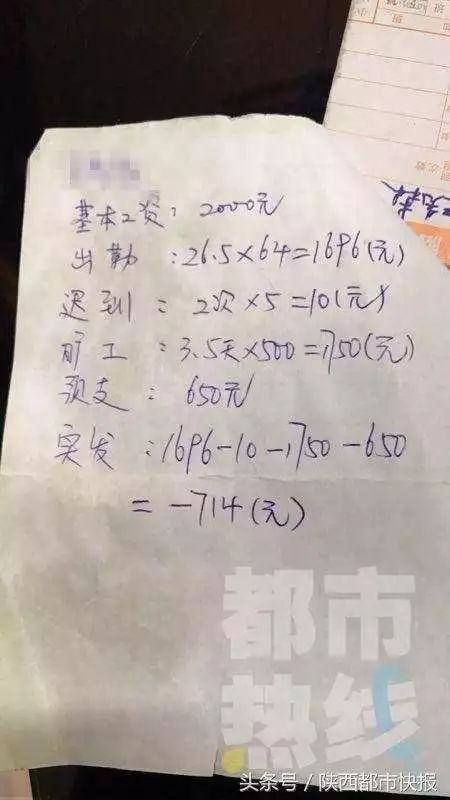 基本工资：2000元
出勤：26.5×64=1696(元)
迟到：2次×5=10(元)
旷工：3.5天×500=1750(元)
预支：650元
实发：1696-10-1750-650
=-714(元)
都市
热线
头条号/陕西都市快报